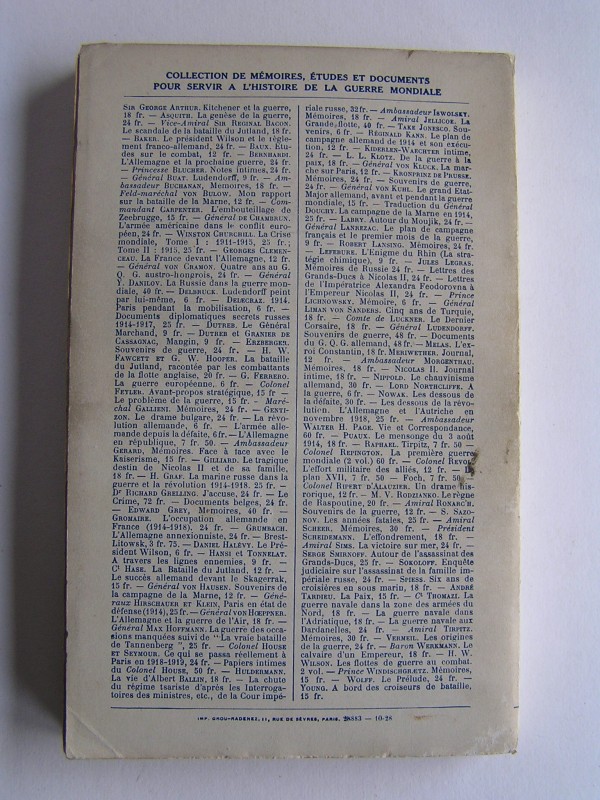 COLLECTION DE MÉMOIRES, ÉTUDES ET DOCUMENTS
POUR SERVIR A L'HISTOIRE DE LA GUERRE MONDIALE
SIR GEORGE ARTHUR. Kitchener et la guerre,
18 fr. — ASQUITH. La genèse de la guerre,
24 fr. — Vice-Amiral SIR REGINAL BACON.
Le scandale de la bataille du Jutland, 18 fr.
— BAKER. Le président Wilson et le règle-
ment franco-allemand, 24 fr. — BAUX. Étu-
des sur le combat, 12 fr. — BERNHARDI.
L'Allemagne et la prochaine guerre, 24 fr.
— Princesse BLUCHER. Notes intimes, 24 fr.
— Général BUAT. Ludendorff, 9 fr. — Am-
bassadeur BUCHANAN, Mémoires, 18 fr. —
Feld-maréchal VON BULOW. Mon rapport
sur la bataille de la Marne, 12 fr. — Com-
mandant CARPENTER. L'embouteillage de
Zeebrugge, 15 fr. — Général DE CHAMBRUN.
L'armée américaine dans le conflit euro-
péen, 24 fr. — WINSTON CHURCHILL. La Crise
mondiale, Tome I : 1911-1915, 25 fr.;
Tome II : 1915, 25 fr. — GEORGES CLEMEN-
CEAU. La France devant l'Allemagne, 12 fr.
— Général VON CRAMON. Quatre ans au G.
Q. G. austro-hongrois, 24 fr. — Général
Y. DANILOV. La Russie dans la guerre mon-
diale, 40 fr. — DELBRUCK. Ludendorff peint
par lui-même, 6 fr. — DELECRAZ. 1914.
Paris pendant la mobilisation, 6 fr. —
Documents diplomatiques secrets russes
1914-1917, 25 fr. — DUTREB. Le Général
Marchand, 9 fr. — DUTREB et GRANIER DE
CASSAGNAC, Mangin, 9 fr. — ERZBERGER.
Souvenirs de guerre, 24 fr. — H. W.
FAWCETT et G. W. HOOPER. La bataille
du Jutland, racontée par les combattants
de la flotte anglaise, 20 fr. — G. FERRERO.
La guerre européenne, 6 fr. — Colonel
FEYLER. Avant-propos stratégique, 15 fr —
Le problème de la guerre, 15 fr. - Maré-
chal GALLIENI. Mémoires, 24 fr. — GENTI-
ZON. Le drame bulgare, 24 fr. — La révo-
lution allemande, 6 fr. — L'armée alle-
mande depuis la défaite, 6 fr. — L'Allemagne
en république, 7 fr. 50. — Ambassadeur
GERARD. Mémoires. Face à face avec le
Kaiserisme, 15 fr. — GILLIARD. Le tragique
destin de Nicolas II et de sa famille,
18 fr. — H. GRAF. La marine russe dans la
guerre et la révolution 1914-1918. 25 fr. —
Dr RICHARD GRELLING. J'accuse, 24 fr. — Le
Crime, 72 fr. — Documents belges, 24 fr.
— EDWARD GREY, Mémoires, 40 fr. —
GROMAIRE. L'occupation allemande en
France (1914-1918). 24 fr. — GRUMBACH.
L'Allemagne annexionniste, 24 fr. — Brest-
Litowsk, 3 fr. 75. — DANIEL HALÉVY. Le Pré-
sident Wilson, 6 fr. — HANSI et TONNELAT.
A travers les lignes ennemies, 9 fr. —
Ct HASE. La Bataille du Jutland, 12 fr. —
Le succès allemand devant le Skagerrak,
15 fr. — Général VON HAUSEN. Souvenirs de
la campagne de la Marne, 12 fr. — Géné-
raux HIRSCHAUER et KLEIN, Paris en état de
défense (1914), 25 fr. — Général VON HŒPPNER.
L'Allemagne et la guerre de l'Air, 18 fr. —
Général MAX HOFFMANN. La guerre des occa-
sions manquées suivi de "La vraie bataille
de Tannenberg", 25 fr. — Colonel HOUSE
et SEYMOUR. Ce qui se passa réellement à
Paris en 1918-1919, 24 fr. — Papiers intimes
du Colonel HOUSE, 50 fr. — HULDERMANN.
La vie d'Albert BALLIN, 18 fr. — La chute
du régime tsariste d'après les Interroga-
toires des ministres, etc., de la Cour impé-
riale russe, 32 fr. — Ambassadeur ISWOLSKY.
Mémoires, 18 fr. — Amiral JELLICOE. La
Grande flotte, 40 fr. — TAKE JONESCO. Sou-
venirs, 6 fr. — RÉGINALD KANN. Le plan de
campagne allemand de 1914 et son exécu-
tion, 12 fr. — KIDERLEN-WAECHTER intime,
24 fr. — L. L. KLOTZ. De la guerre à la
paix, 18 fr. — Général VON KLUCK. La mar-
che sur Paris, 12 fr. — KRONPRINZ DE PRUSSE.
Mémoires, 24 fr. — Souvenirs de guerre,
24 fr. — Général VON KUHL. Le grand État-
Major allemand, avant et pendant la guerre
mondiale, 15 fr. — Traduction du Général
DOUCHY. La campagne de la Marne en 1914,
25 fr. — LABRY. Autour du Moujik, 24 fr. —
Général LANREZAC. Le plan de campagne
français et le premier mois de la guerre,
9 fr. — ROBERT LANSING. Mémoires, 24 fr.
— LEFEBURE. L'Enigme du Rhin (La stra-
tégie chimique), 9 fr. — JULES LEGRAS.
Mémoires de Russie 24 fr. — Lettres des
Grands-Ducs à Nicolas II, 24 fr. — Lettres
de l'Impératrice Alexandra Feodorovna à
l'Empereur Nicolas II, 24 fr. — Prince
LICHNOWSKY. Mémoire, 6 fr. — Général
LIMAN VON SANDERS. Cinq ans de Turquie,
18 fr. — Comte de LUCKNER. Le Dernier
Corsaire, 18 fr. — Général LUDENDORFF.
Souvenirs de guerre, 48 fr. — Documents
du G. Q. G. allemand, 48 fr. — MELAS. L'ex-
roi Constantin, 18 fr. MERIWETHER. Journal,
12 fr. — Ambassadeur MORGENTHAU.
Mémoires, 18 fr. — NICOLAS II. Journal
intime, 18 fr. — NIPPOLD. Le chauvinisme
allemand, 30 fr. — LORD NORTHCLIFFE. A
la guerre, 6 fr. — NOWAK. Les dessous de
la défaite, 30 fr. — Les dessous de la révo-
lution. L'Allemagne et l'Autriche en
novembre 1918, 25 fr. — Ambassadeur
WALTER H. PAGE. Vie et Correspondance,
60 fr. — PUAUX. Le mensonge du 3 août
1914, 18 fr. — RAPHAEL. Tirpitz, 7 fr. 50. —
Colonel REPINGTON. La première guerre
mondiale (2 vol.) 60 fr. — Colonel REVOL
L'effort militaire des alliés, 12 fr. — Le
plan XVII, 7 fr. 50 — Foch, 7 fr. 50. —
Colonel RIPERT D'ALAUZIER. Un drame his-
rorique, 12 fr. — M. V. RODZIANKO. Le règne
de Raspoutine, 20 fr. — Amiral RONARC'H.
Souvenirs de la guerre, 12 fr. — S. SAZO-
NOV. Les années fatales, 25 fr. — Amiral
SCHEER. Mémoires, 30 fr. — Président
SCHEIDEMANN. L'effondrement, 18 fr. —
Amiral SIMS. La victoire sur mer, 24 fr. —
SERGE SMIRNOFF. Autour de l'assassinat des
Grands-Ducs, 25 fr. — SOKOLOFF. Enquête
judiciaire sur l'assassinat de la famille im-
périale russe, 24 fr. — SPIESS. Six ans de
croisières en sous marin, 18 fr. — ANDRÉ
TARDIEU. La Paix, 15 fr. — Ct THOMAZI. La
guerre navale dans la zone des armées du
Nord, 18 fr. — La guerre navale dans
l'Adriatique, 18 fr. — La guerre navale aux
Dardanelles, 24 fr. — Amiral TIRPITZ.
Mémoires, 30 fr. — VERMEIL. Les origines
de la guerre, 24 fr. — Baron WERKMANN. Le
calvaire d'un Empereur, 18 fr. — H. W.
WILSON. Les flottes de guerre au combat.
2 vol. — Prince WINDISCHGRÆTZ. Mémoires,
15 fr. — WOLFF. Le Prélude, 24 fr. —
YOUNG. A bord des croiseurs de bataille,
15 fr.
IMP. GROU-RADENEZ, 11, RUE DE SÈVRES, PARIS, 28883 — 10-28